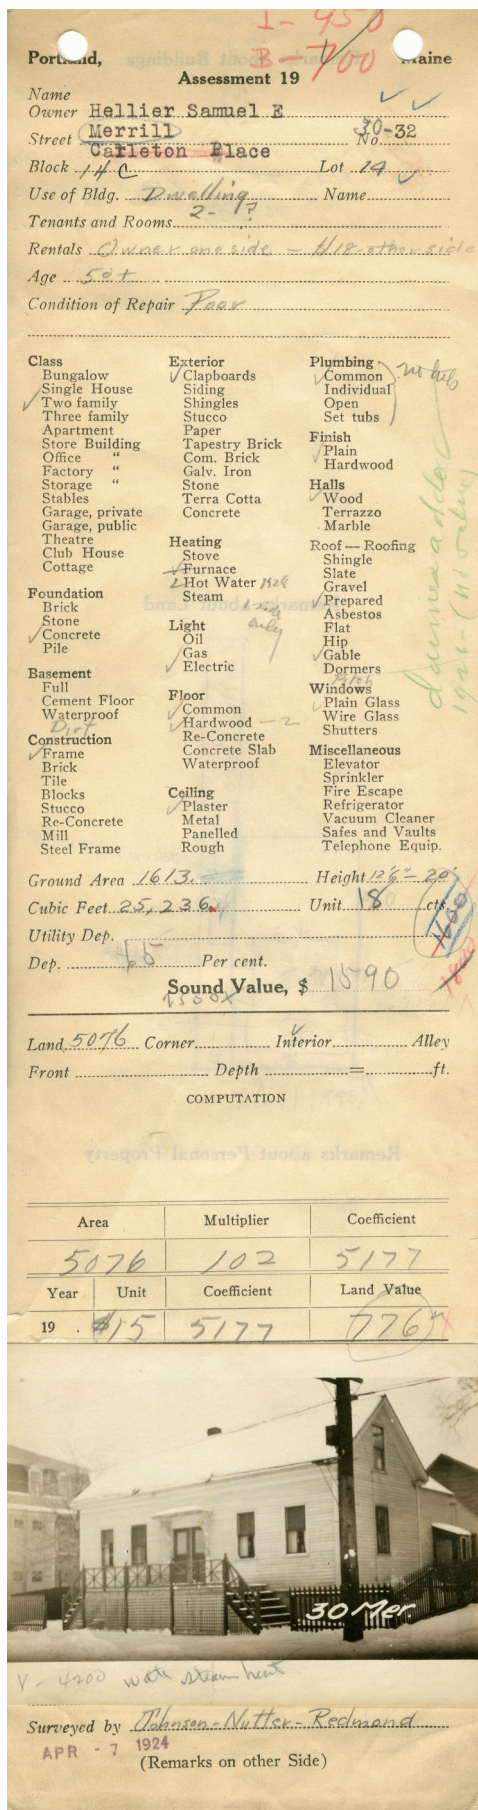 I - 950
B - 700
Portland, Maine
Assessment 19
Name
Owner Hellier Samuel E
Street Merrill No. 30-32
Carleton Place
Block 14 C Lot 14
Use of Bldg. Dwelling Name
Tenants and Rooms 2- ?
Rentals Owner one side - $18-other side
Age 50+
Condition of Repair Poor
Class
Bungalow
Single House
Two family
Three family
Apartment
Store Building
Office "
Factory "
Storage "
Stables
Garage, private
Garage, public
Theatre
Club House
Cottage
Foundation
Brick
Stone
Concrete
Pile
Basement
Full
Cement Floor
Waterproof
Dirt
Construction
Frame
Brick
Tile
Blocks
Stucco
Re-Concrete
Mill
Steel Frame
Exterior
Clapboards
Siding
Shingles
Stucco
Paper
Tapestry Brick
Com. Brick
Galv. Iron
Stone
Terra Cotta
Concrete
Heating
Stove
Furnace
Hot Water
Steam
only
Light
Oil
Gas
Electric
Floor
Common
Hardwood - 2
Re-Concrete
Concrete Slab
Waterproof
Ceiling
Plaster
Metal
Panelled
Rough
Plumbing
Common no tubs
Individual
Open
Set tubs
Finish
Plain
Hardwood
Halls
Wood
Terrazzo
Marble
Roof — Roofing
Shingle
Slate
Gravel
Prepared
Asbestos
Flat
Hip
Gable
Dormers
Pitch
Windows
Plain Glass
Wire Glass
Shutters
Miscellaneous
Elevator
Sprinkler
Fire Escape
Refrigerator
Vacuum Cleaner
Safes and Vaults
Telephone Equip.
Ground Area 1613. Height 12'6" - 20'
Cubic Feet 25,236. Unit 18 cts.
Utility Dep.
Dep. 65 Per cent.
Sound Value, $ 1590
Land 5076 Corner Interior Alley
Front Depth = ft.
COMPUTATION
Remarks about Personal Property
Area Multiplier Coefficient
5076 102 5177
Year Unit Coefficient Land Value
19 . $15 5177 776
30 Mer
V - 4200
Surveyed by Johnson - Nutter - Redmond
APR - 7 1924
(Remarks on other Side)